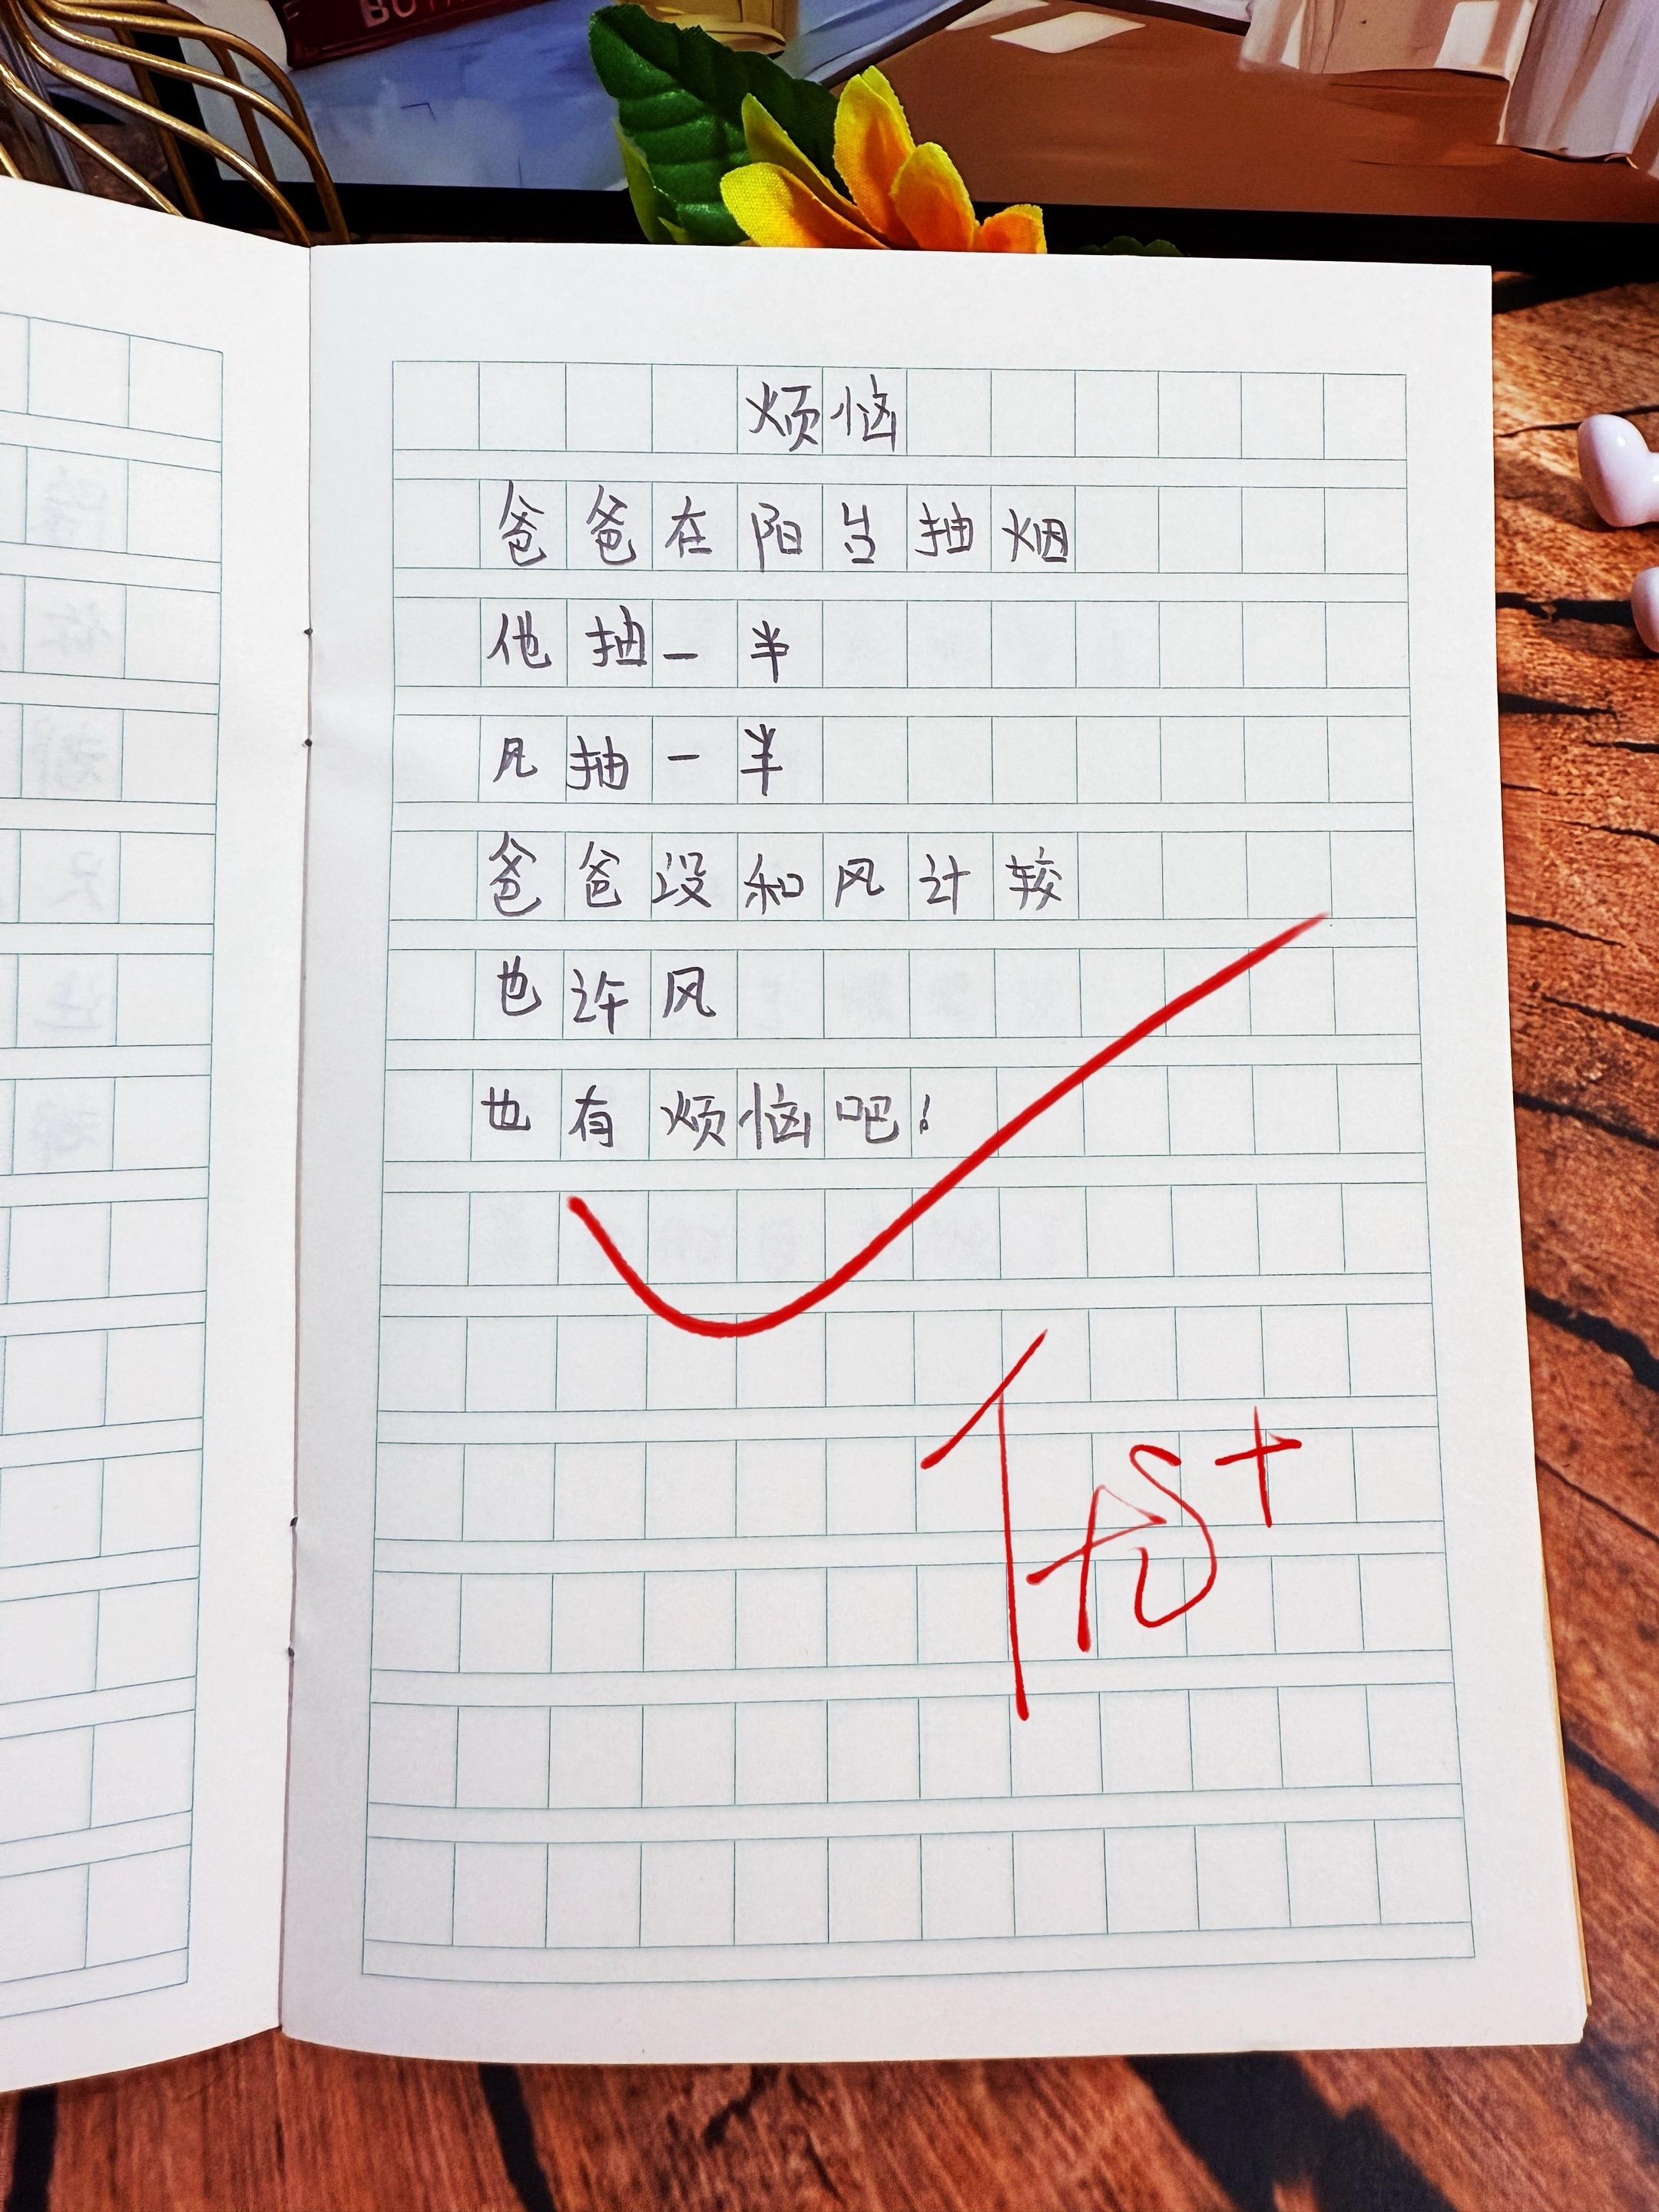 烦恼
爸爸在阳台抽烟
他抽一半
风抽一半
爸爸没和风计较
也许风
也有烦恼吧!